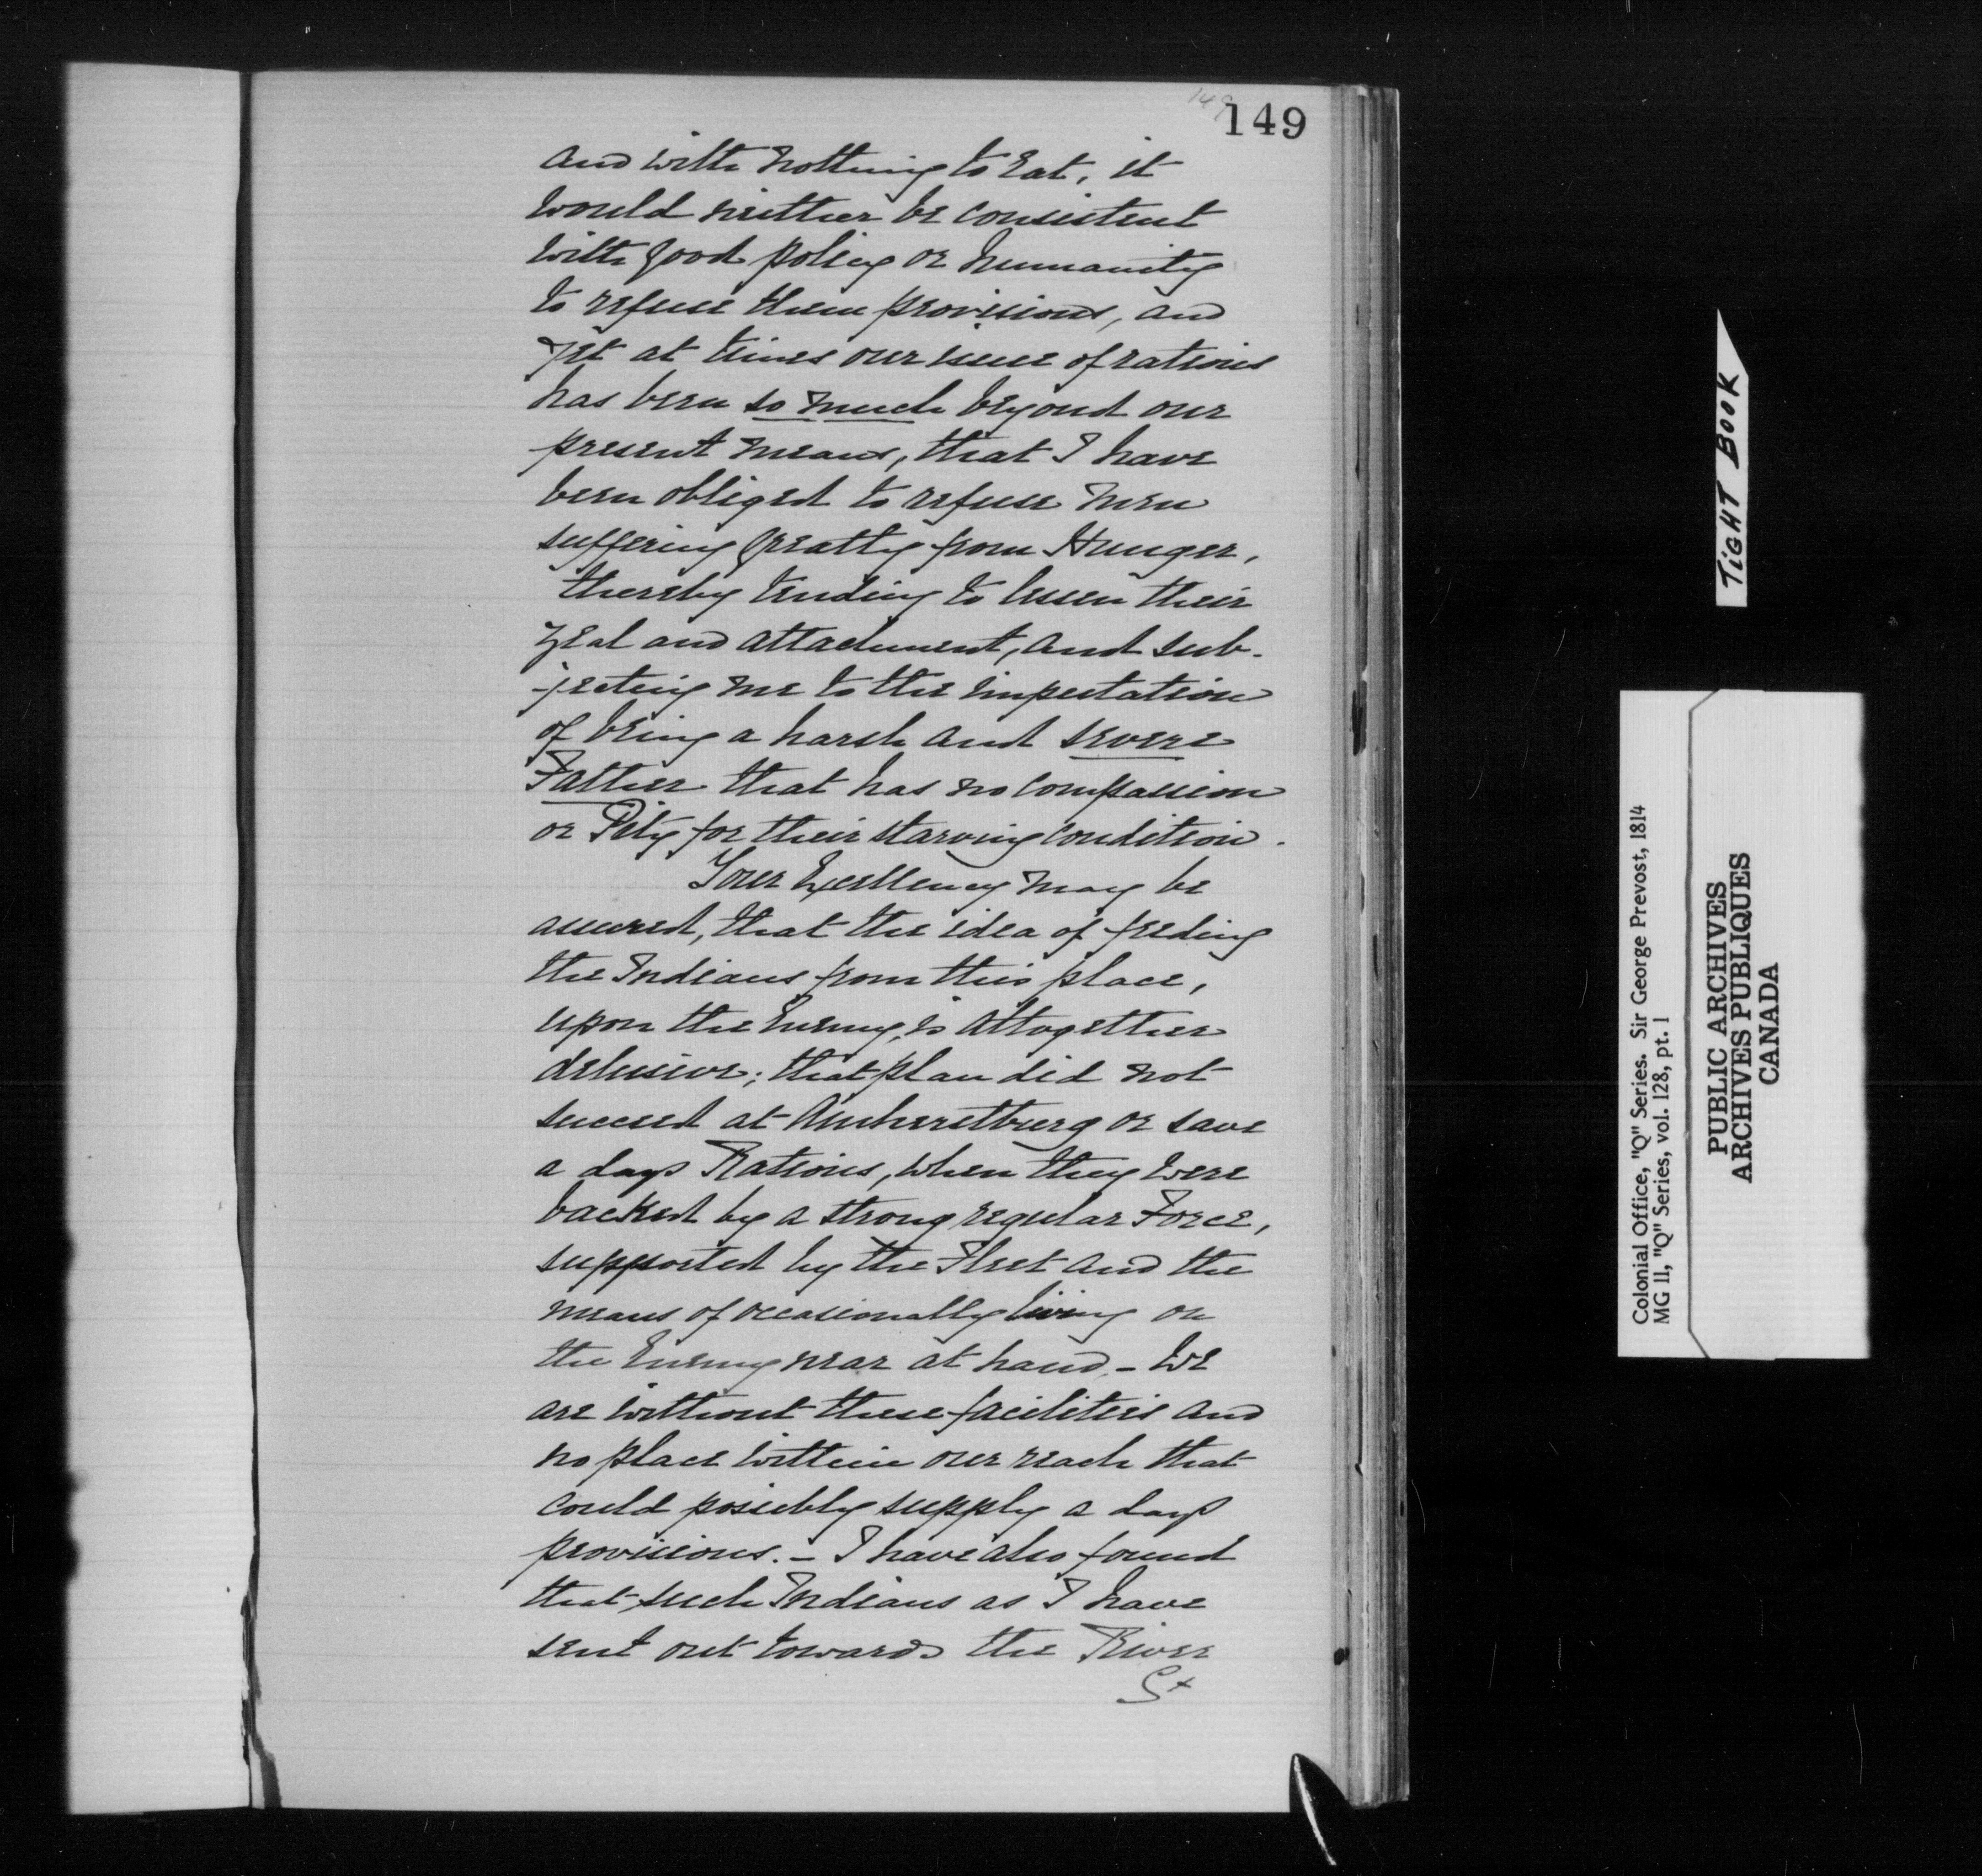 149
149
and with nothing to Eat, it
would neither be consistent
with good policy or humanity
to refuse them provisions, and
yet at times our issue of rations
has been so much beyond our
present means, that I have
been obliged to refuse men
suffering greatly from Hunger,
thereby tending to lessen their
zeal and attachment, and sub-
-jecting me to the imputation
of being a harsh and severe
Father that has no compassion
or Pity for their starving condition.
Your Excellency may be
assured, that the idea of feeding
the Indians from this place,
upon the Enemy, is altogether
delusive; that plan did not
succeed at Amherstburg or save
a days Rations, when they were
backed by a strong regular Force,
supported by the Fleet and the
means of occasionally living on
the Enemy near at hand.- We
are without these facilities and
no place within our reach that
could possibly supply a days
provisions. - I have also found
that such Indians as I have
sent out towards the River
St
TIGHT BOOK
Colonial Office, "Q" Series. Sir George Prevost, 1814
MG 11, "Q" Series, vol. 128, pt. 1
PUBLIC ARCHIVES
ARCHIVES PUBLIQUES
CANADA